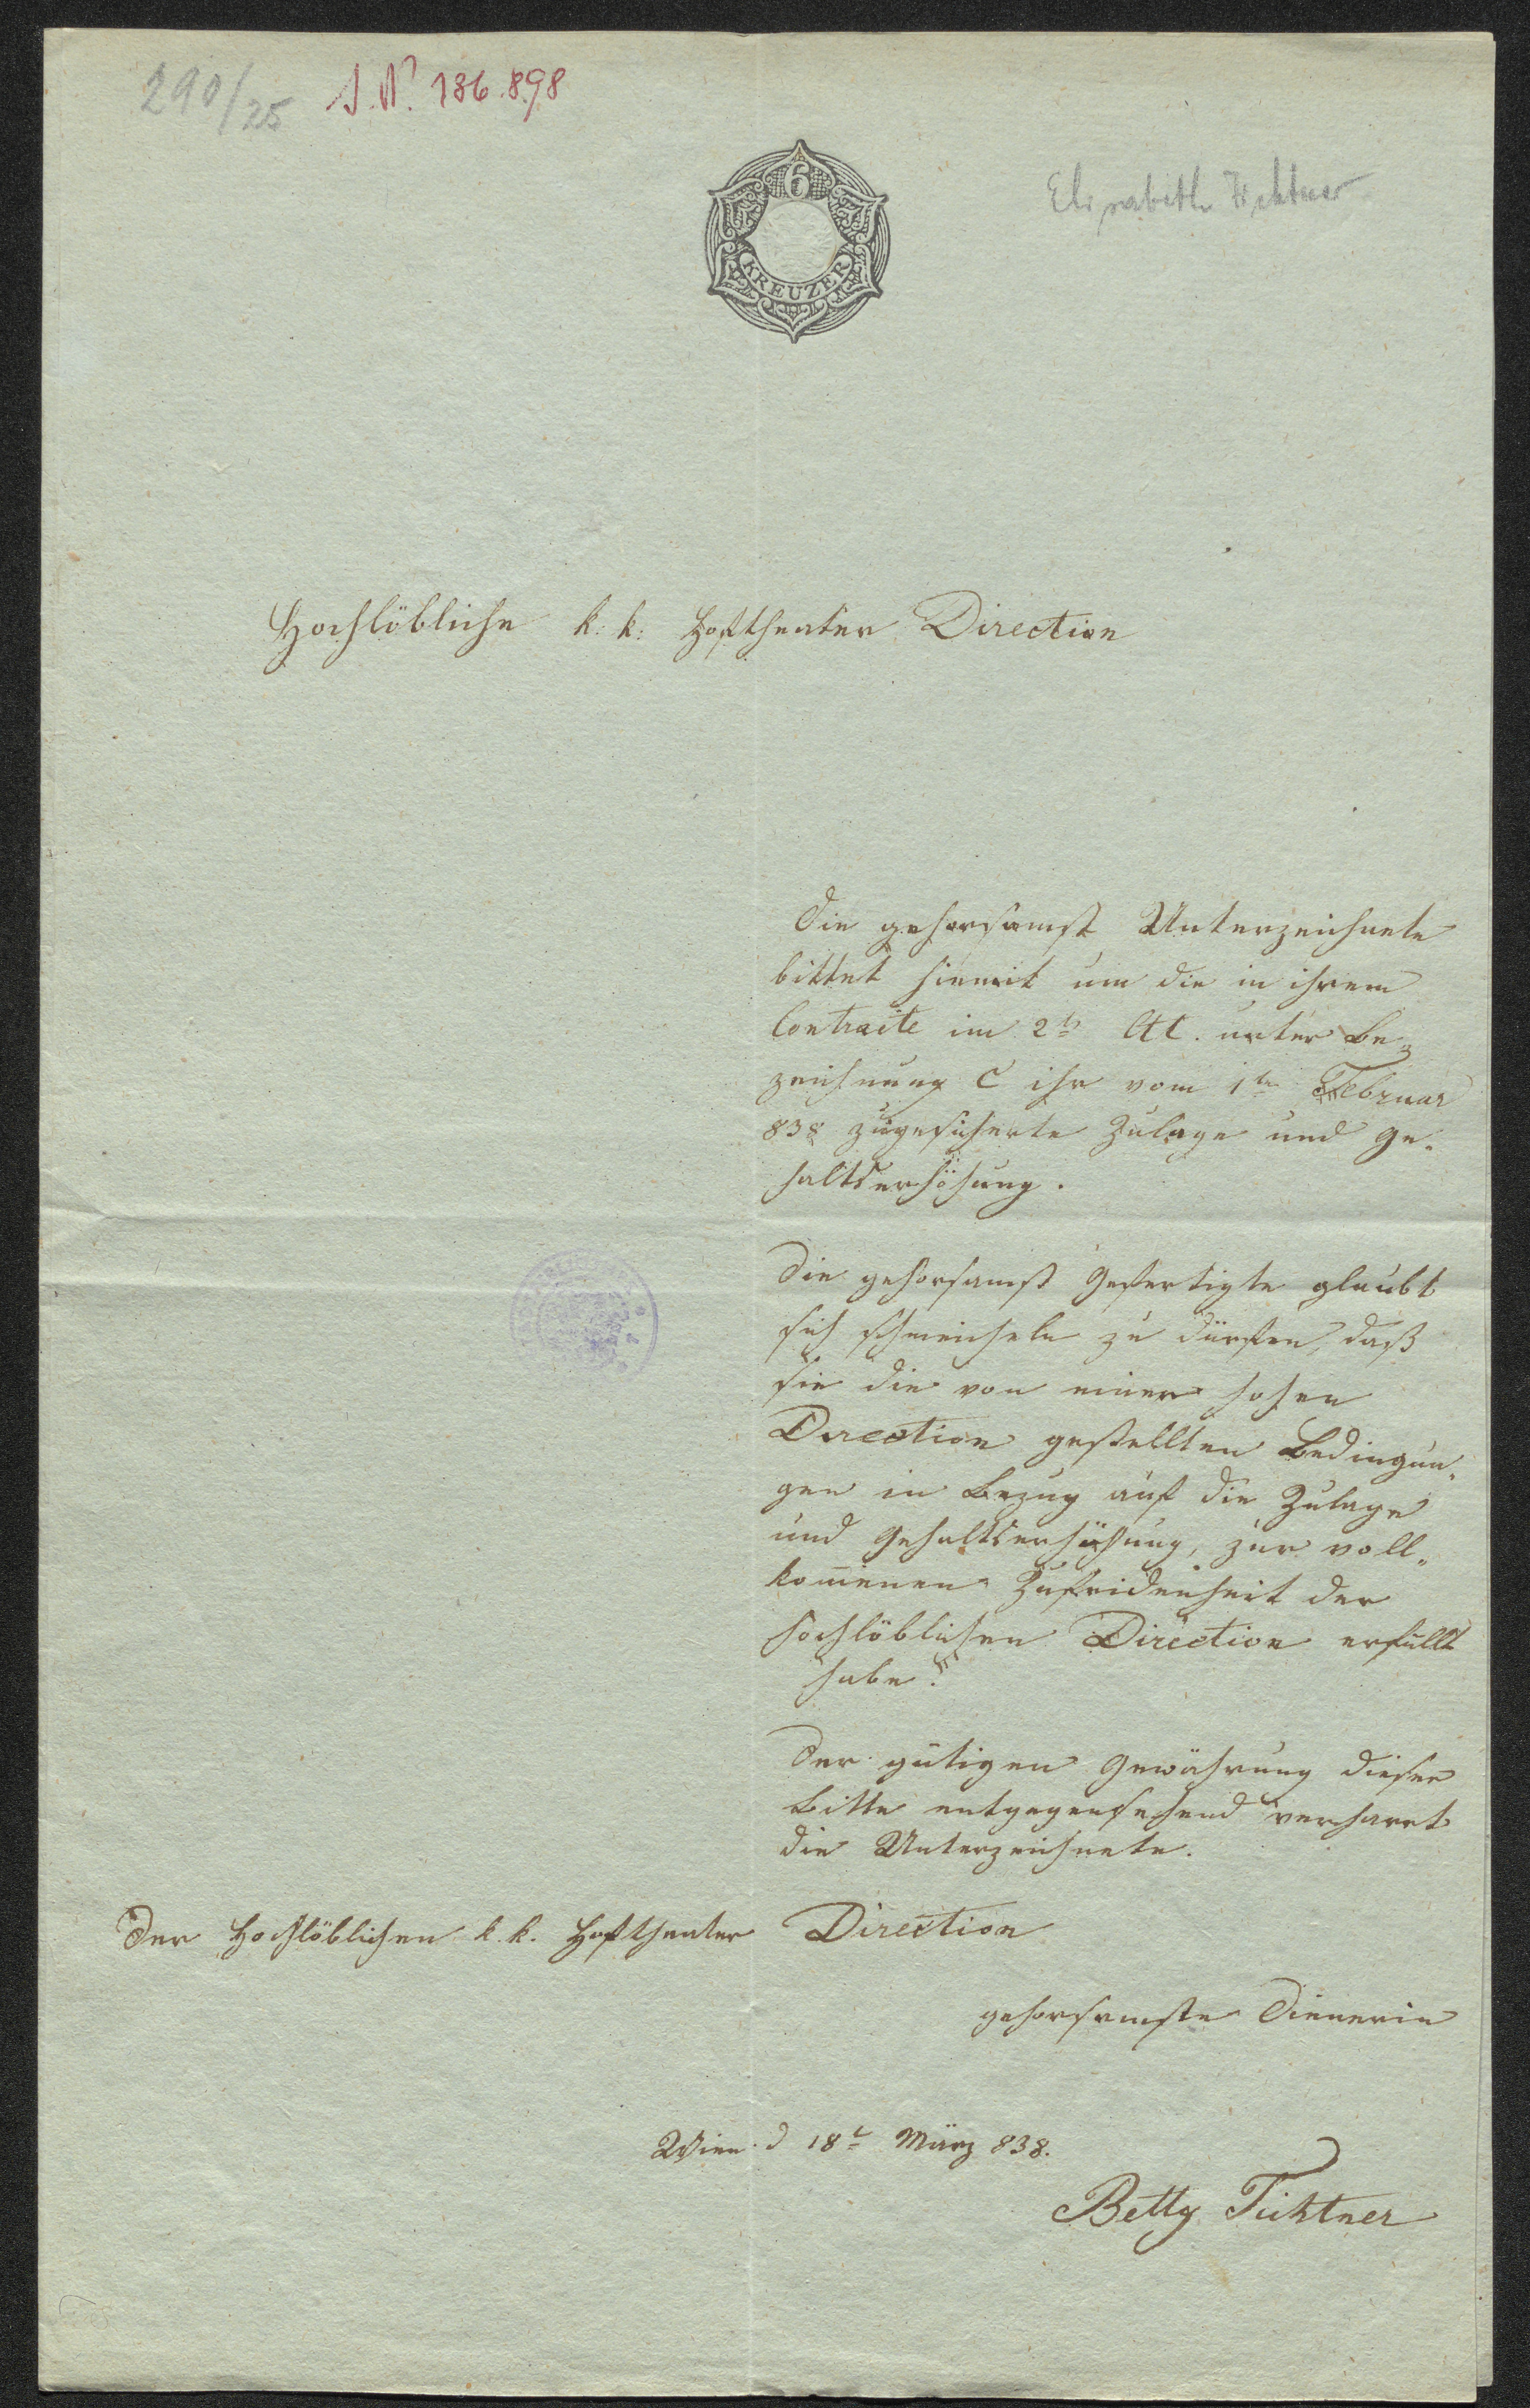 290/25 I.N. 136.898
6
KREUZER
Elisabeth Fichtner
Hochlöbliche k: k: Hoftheater Direction
Die gehorsamst Unterzeichnete
bittet hiemit um die in ihrem
Contracte im 2t. Art. unter Be-
zeichnung C ihr vom 1ten Februar
838 zugesicherte Zulage und Ge-
haltserhöhung.
Die gehorsamst Gefertigte glaubt
sich schmeicheln zu dürfen, daß
sie die von einer hohen
Direction gestellten Bedingun-
gen in Bezug auf die Zulage
und Gehaltserhöhung, zur voll-
kommenen Zufridenheit der
hochlöblichen Direction erfüllt
habe.
Der gütigen Gewährung dieser
Bitte entgegensehend verharrt
die Unterzeichnete.
Der Hochlöblichen k. k. Hoftheater Direction
gehorsamste Dienerin
Wien d 18t März 838.
Betty Fichtner